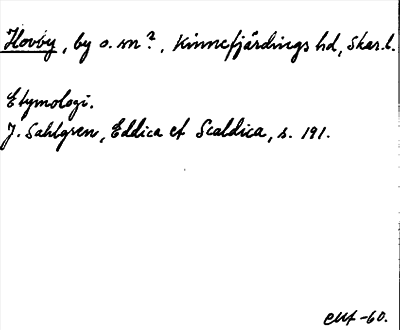 Hovby, by o. sn?, Kinnefjärdings hd, Skar. l.
Etymologi.
J. Sahlgren, Eddica et Scaldica, s. 191.
-60.